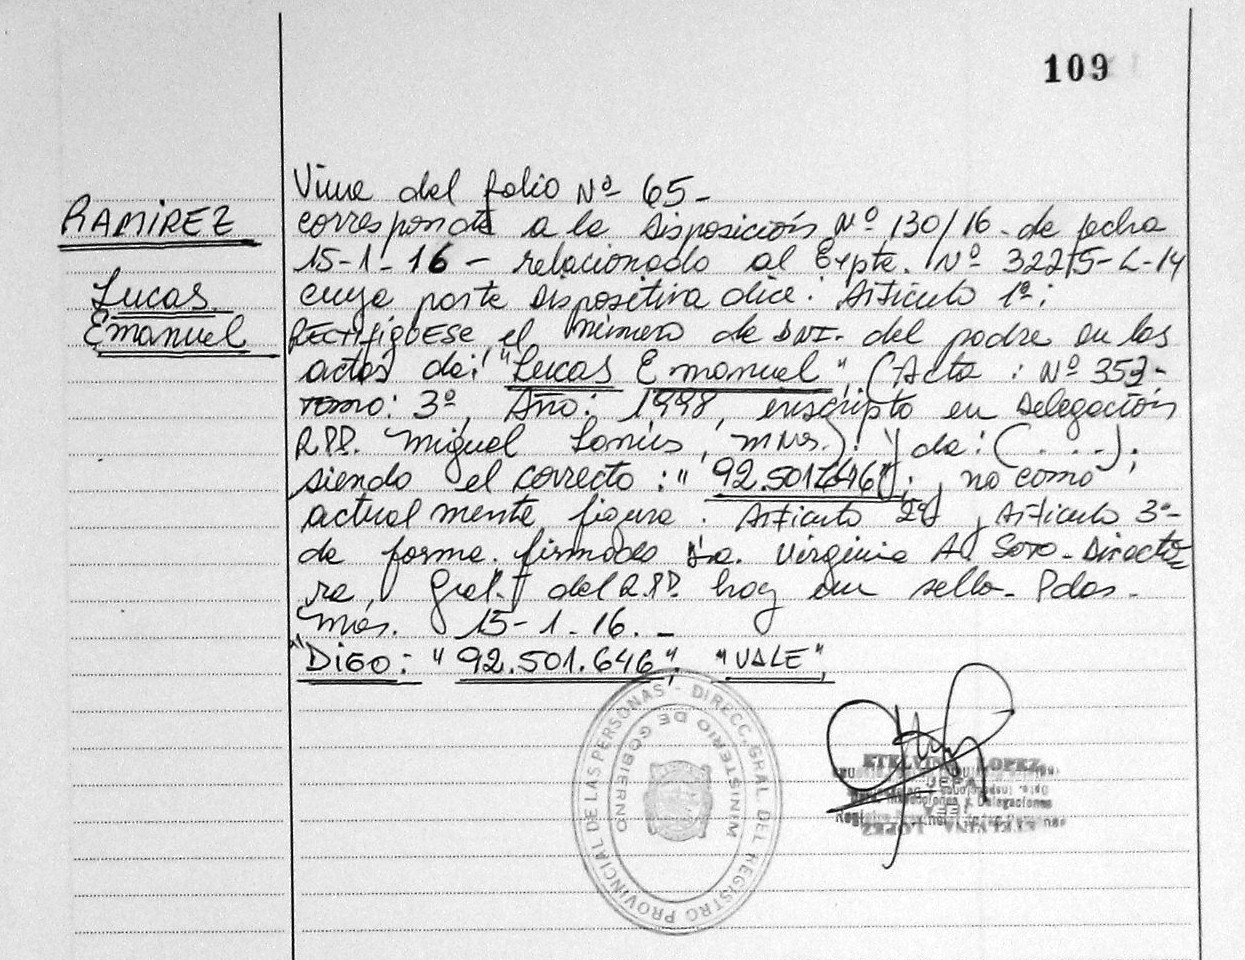 109
RAMIREZ
Lucas
Emanuel
Viene del folio Nº 65-
correspondte a la Disposición Nº 130/16 - de fecha
15-1-16 - relacionado al Expte. Nº 3225-L-14
cuya parte Dispositiva dice: Artículo 1º:
RECTIFIQUESE el número de DNI. del padre en las
actas de: "Lucas Emanuel", (Acta: Nº 353-
Tomo: 3º, Año: 1998, inscripto en Delegación
R.PP. Miguel Lanús, Mnes.) y de: (. . . .);
siendo el correcto: "92.501.646"; y no como
actualmente figura. Artículo 2º y Artículo 3º-
de forma. firmado Dra. Virginia A. Soto - Directo
ra, Gral. del R.PP. hay un sello. Pdas.
Mnes. 15-1-16.-
"DIGO: "92.501.646", "VALE"
DIRECC. GRAL DEL REGISTRO PROVINCIAL DE LAS PERSONAS -
MINISTERIO DE GOBIERNO
ETELVINA LOPEZ
JEFA
Dpto. Inspecciones y Delegaciones
ETELVINA LOPEZ